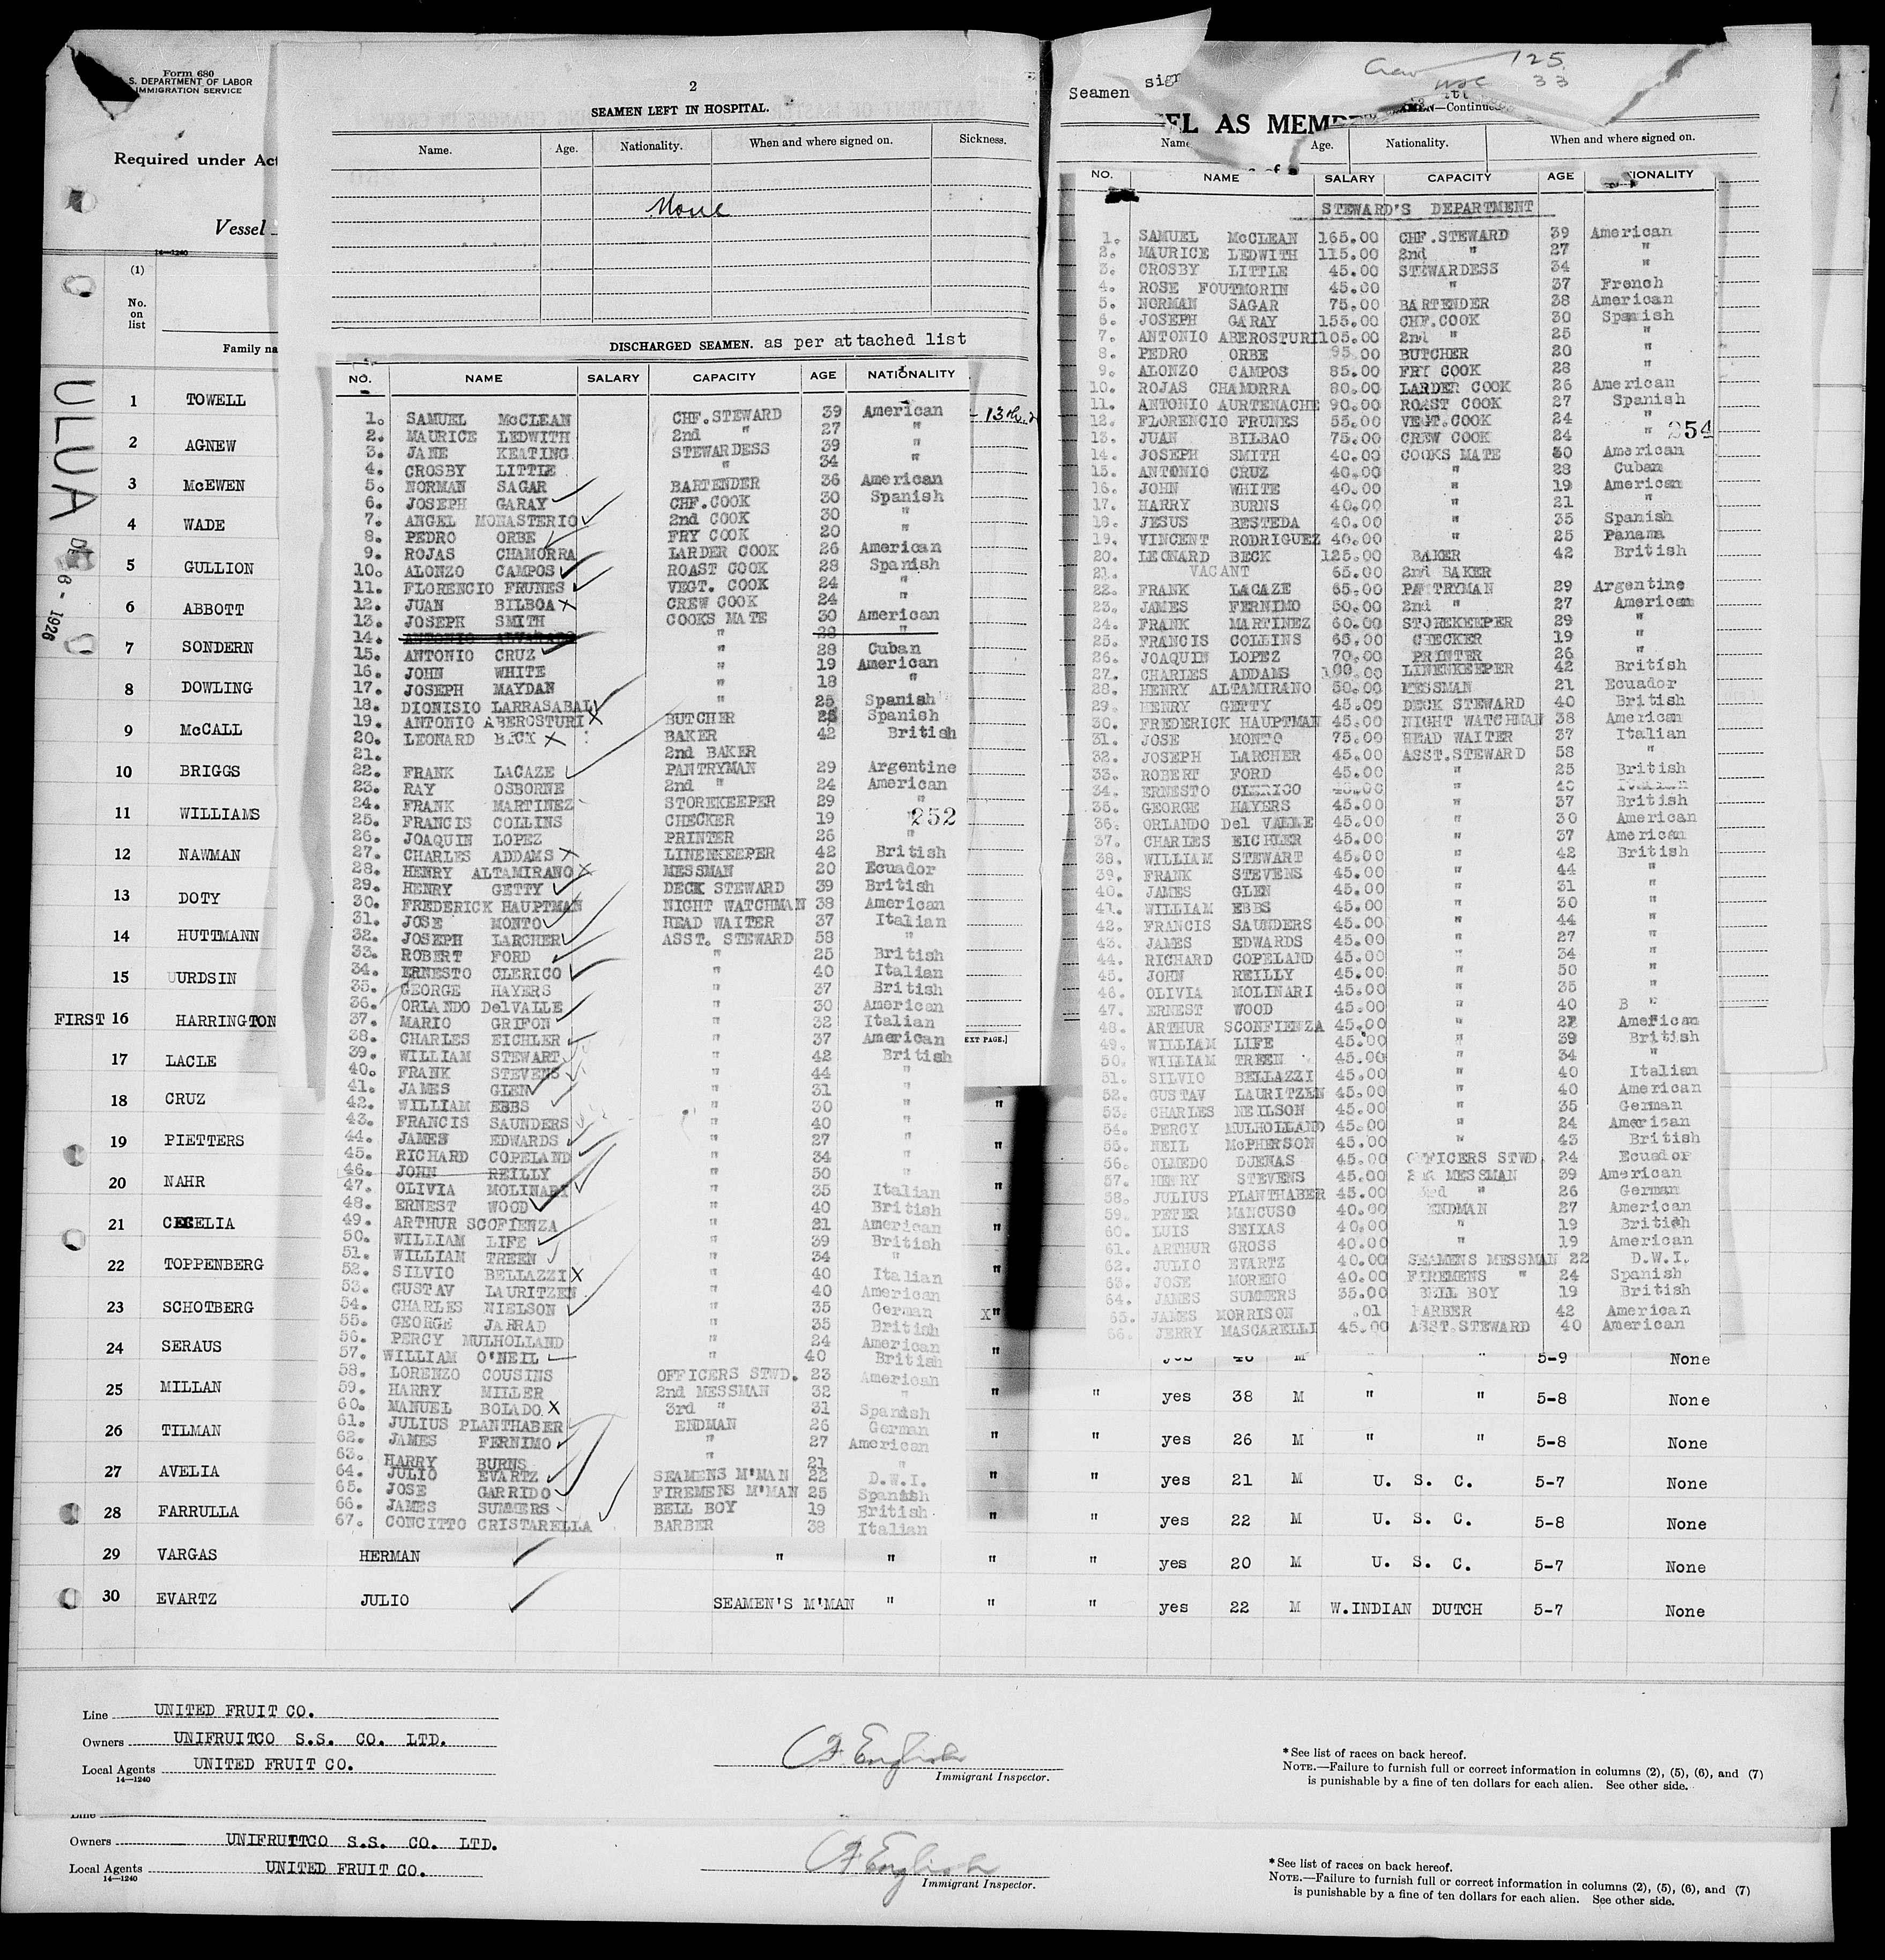 Form 680
S. DEPARTMENT OF LABOR
IMMIGRATION SERVICE
Required under Act
Vessel
14—1240
(1)
No. on list
Family na
ULUA
6 - 1926
1 TOWELL
2 AGNEW
3 McEWEN
4 WADE
5 GULLION
6 ABBOTT
7 SONDERN
8 DOWLING
9 McCALL
10 BRIGGS
11 WILLIAMS
12 NAWMAN
13 DOTY
14 HUTTMANN
15 UURDSIN
FIRST 16 HARRINGTON
17 LACLE
18 CRUZ "
19 PIETTERS "
20 NAHR "
21 CECELIA "
22 TOPPENBERG "
23 SCHOTBERG X"
24 SERAUS " " 5-9 None
25 MILLAN " " yes 38 M " " 5-8 None
26 TILMAN " " yes 26 M " " 5-8 None
27 AVELIA " " yes 21 M U. S. C. 5-7 None
28 FARRULLA " " yes 22 M U. S. C. 5-8 None
29 VARGAS HERMAN " " " " yes 20 M U. S. C. 5-7 None
30 EVARTZ JULIO SEAMEN'S M'MAN " " " yes 22 M W.INDIAN DUTCH 5-7 None
2
SEAMEN LEFT IN HOSPITAL.
Name. Age. Nationality. When and where signed on. Sickness.
None
DISCHARGED SEAMEN. as per attached list
NO. NAME SALARY CAPACITY AGE NATIONALITY
1. SAMUEL McCLEAN CHF.STEWARD 39 American
2. MAURICE LEDWITH 2nd " 27 "
3. JANE KEATING STEWARDESS 39 "
4. CROSBY LITTLE " 34 "
5. NORMAN SAGAR BARTENDER 36 American
6. JOSEPH GARAY CHF.COOK 30 Spanish
7. ANGEL MONASTERIO 2nd COOK 30 "
8. PEDRO ORBE FRY COOK 20 "
9. ROJAS CHAMORRA LARDER COOK 26 American
10. ALONZO CAMPOS ROAST COOK 28 Spanish
11. FLORENCIO FRUNES VEGT. COOK 24 "
12. JUAN BILBOA X CREW COOK 24 "
13. JOSEPH SMITH COOKS MATE 30 American
14. ANTONIO ALVARADO " 28 "
15. ANTONIO CRUZ " 28 Cuban
16. JOHN WHITE " 19 American
17. JOSEPH MAYDAN " 18 "
18. DIONISIO LARRASABAL " 25 Spanish
19. ANTONIO ABEROSTURI X BUTCHER 25 Spanish
20. LEONARD BECK X BAKER 42 British
21. 2nd BAKER
22. FRANK LACAZE PANTRYMAN 29 Argentine
23. RAY OSBORNE 2nd " 24 American
24. FRANK MARTINEZ STOREKEEPER 29 "
25. FRANCIS COLLINS CHECKER 19 " 252
26. JOAQUIN LOPEZ PRINTER 26 "
27. CHARLES ADDAMS X LINENKEEPER 42 British
28. HENRY ALTAMIRANO X MESSMAN 20 Ecuador
29. HENRY GETTY DECK STEWARD 39 British
30. FREDERICK HAUPTMAN NIGHT WATCHMAN 38 American
31. JOSE MONTO HEAD WAITER 37 Italian
32. JOSEPH LARCHER ASST. STEWARD 58 "
33. ROBERT FORD " 25 British
34. ERNESTO CLERICO " 40 Italian
35. GEORGE HAYERS " 37 British
36. ORLANDO DelVALLE " 30 American
37. MARIO GRIFON " 32 Italian
38. CHARLES EICHLER " 37 American
39. WILLIAM STEWART " 42 British
40. FRANK STEVENS " 44 "
41. JAMES GLEN " 31 "
42. WILLIAM EBBS " 30 "
43. FRANCIS SAUNDERS " 40 "
44. JAMES EDWARDS " 27 "
45. RICHARD COPELAND " 34 "
46. JOHN REILLY " 50 "
47. OLIVIA MOLINARI " 35 Italian
48. ERNEST WOOD " 40 British
49. ARTHUR SCOFIENZA " 21 American
50. WILLIAM LIFE " 39 British
51. WILLIAM TREEN " 34 "
52. SILVIO BELLAZZI X " 40 Italian
53. GUSTAV LAURITZEN " 40 American
54. CHARLES NIELSON " 35 German
55. GEORGE JARRAD " 35 British
56. PERCY MULHOLLAND " 24 American
57. WILLIAM O'NEIL " 40 British
58. LORENZO COUSINS OFFICERS STWD. 23 American
59. HARRY MILLER 2nd MESSMAN 32 "
60. MANUEL BOLADO X 3rd " 31 Spanish
61. JULIUS PLANTHABER ENDMAN 26 German
62. JAMES FERNIMO " 27 American
63. HARRY BURNS " 21 "
64. JULIO EVARTZ SEAMENS M'MAN 22 D.W.I.
65. JOSE GARRIDO FIREMENS M'MAN 25 Spanish
66. JAMES SUMMERS BELL BOY 19 British
67. CONCITTO CRISTARELLA BARBER 38 Italian
13th.
EXT PAGE.]
Seamen sign
Crew 125
USC 33
MEN—Continued
EL AS MEMB
Name Age. Nationality. When and where signed on.
NO. NAME SALARY CAPACITY AGE TIONALITY
STEWARD'S DEPARTMENT
1. SAMUEL McCLEAN 165.00 CHF.STEWARD 39 American
2. MAURICE LEDWITH 115.00 2nd " 27 "
3. CROSBY LITTLE 45.00 STEWARDESS 34 "
4. ROSE FOUTMORIN 45.00 " 37 French
5. NORMAN SAGAR 75.00 BARTENDER 38 American
6. JOSEPH GARAY 155.00 CHF.COOK 30 Spanish
7. ANTONIO ABEROSTURI 105.00 2nd " 25 "
8. PEDRO ORBE 95.00 BUTCHER 20 "
9. ALONZO CAMPOS 85.00 FRY COOK 28 "
10. ROJAS CHAMORRA 80.00 LARDER COOK 26 American
11. ANTONIO AURTENACHE 90.00 ROAST COOK 27 Spanish
12. FLORENCIO FRUNES 55.00 VEGT.COOK 24 "
13. JUAN BILBAO 75.00 CREW COOK 24 " 254
14. JOSEPH SMITH 40.00 COOKS MATE 30 American
15. ANTONIO CRUZ 40.00 " 28 Cuban
16. JOHN WHITE 40.00 " 19 American
17. HARRY BURNS 40.00 " 21 "
18. JESUS BESTEDA 40.00 " 35 Spanish
19. VINCENT RODRIGUEZ 40.00 " 25 Panama
20. LEONARD BECK 125.00 BAKER 42 British
21. VACANT 65.00 2nd BAKER
22. FRANK LACAZE 65.00 PANTRYMAN 29 Argentine
23. JAMES FERNIMO 50.00 2nd " 27 American
24. FRANK MARTINEZ 60.00 STOREKEEPER 29 "
25. FRANCIS COLLINS 65.00 CHECKER 19 "
26. JOAQUIN LOPEZ 70.00 PRINTER 26 "
27. CHARLES ADDAMS 100.00 LINENKEEPER 42 British
28. HENRY ALTAMIRANO 50.00 MESSMAN 21 Ecuador
29. HENRY GETTY 45.00 DECK STEWARD 40 British
30. FREDERICK HAUPTMAN 45.00 NIGHT WATCHMAN 38 American
31. JOSE MONTO 75.00 HEAD WAITER 37 Italian
32. JOSEPH LARCHER 45.00 ASST.STEWARD 58 "
33. ROBERT FORD 45.00 " 25 British
34. ERNESTO CLERICO " 40 Italian
35. GEORGE HAYERS 45.00 " 37 British
36. ORLANDO Del VALLE 45.00 " 30 American
37. CHARLES EICHLER 45.00 " 37 American
38. WILLIAM STEWART 45.00 " 42 British
39. FRANK STEVENS 45.00 " 44 "
40. JAMES GLEN 45.00 " 31 "
41. WILLIAM EBBS 45.00 " 30 "
42. FRANCIS SAUNDERS 45.00 " 44 "
43. JAMES EDWARDS 45.00 " 27 "
44. RICHARD COPELAND 45.00 " 34 "
45. JOHN REILLY 45.00 " 50 "
46. OLIVIA MOLINARI 45.00 " 35 "
47. ERNEST WOOD 45.00 " 40 B "
48. ARTHUR SCONFIENZA 45.00 " American
49. WILLIAM LIFE 45.00 " 39 British
50. WILLIAM TREEN 45.00 " 34 "
51. SILVIO BELLAZZI 45.00 " 40 Italian
52. GUSTAV LAURITZEN 45.00 " 40 American
53. CHARLES NEILSON 45.00 " 35 German
54. PERCY MULHOLLAND 45.00 " 24 American
55. NEIL McPHERSON 45.00 " 43 British
56. OLMEDO DUENAS 45.00 OFFICERS STWD. 24 Ecuador
57. HENRY STEVENS 45.00 MESSMAN 39 American
58. JULIUS PLANTHABER 45.00 3rd " 26 German
59. PETER MANCUSO 40.00 ENDMAN 27 American
60. LUIS SEIXAS 40.00 " 19 British
61. ARTHUR GROSS 40.00 " 19 American
62. JULIO EVARTZ 40.00 SEAMENS MESSMAN 22 D.W.I.
63. JOSE MORENO 40.00 FIREMENS " 24 Spanish
64. JAMES SUMMERS 35.00 BELL BOY 19 British
65. JAMES MORRISON .01 BARBER 42 American
66. JERRY MASCARELLI 45.00 ASST.STEWARD 40 American
Line UNITED FRUIT CO.
Owners UNIFRUITCO S.S. CO. LTD.
Local Agents UNITED FRUIT CO.
14—1240
English
Immigrant Inspector.
*See list of races on back hereof.
NOTE.—Failure to furnish full or correct information in columns (2), (5), (6), and (7)
is punishable by a fine of ten dollars for each alien. See other side.
Line
Owners UNIFRUITCO S.S. CO. LTD.
Local Agents UNITED FRUIT CO.
14—1240
English
Immigrant Inspector.
*See list of races on back hereof.
NOTE.—Failure to furnish full or correct information in columns (2), (5), (6), and (7)
is punishable by a fine of ten dollars for each alien. See other side.